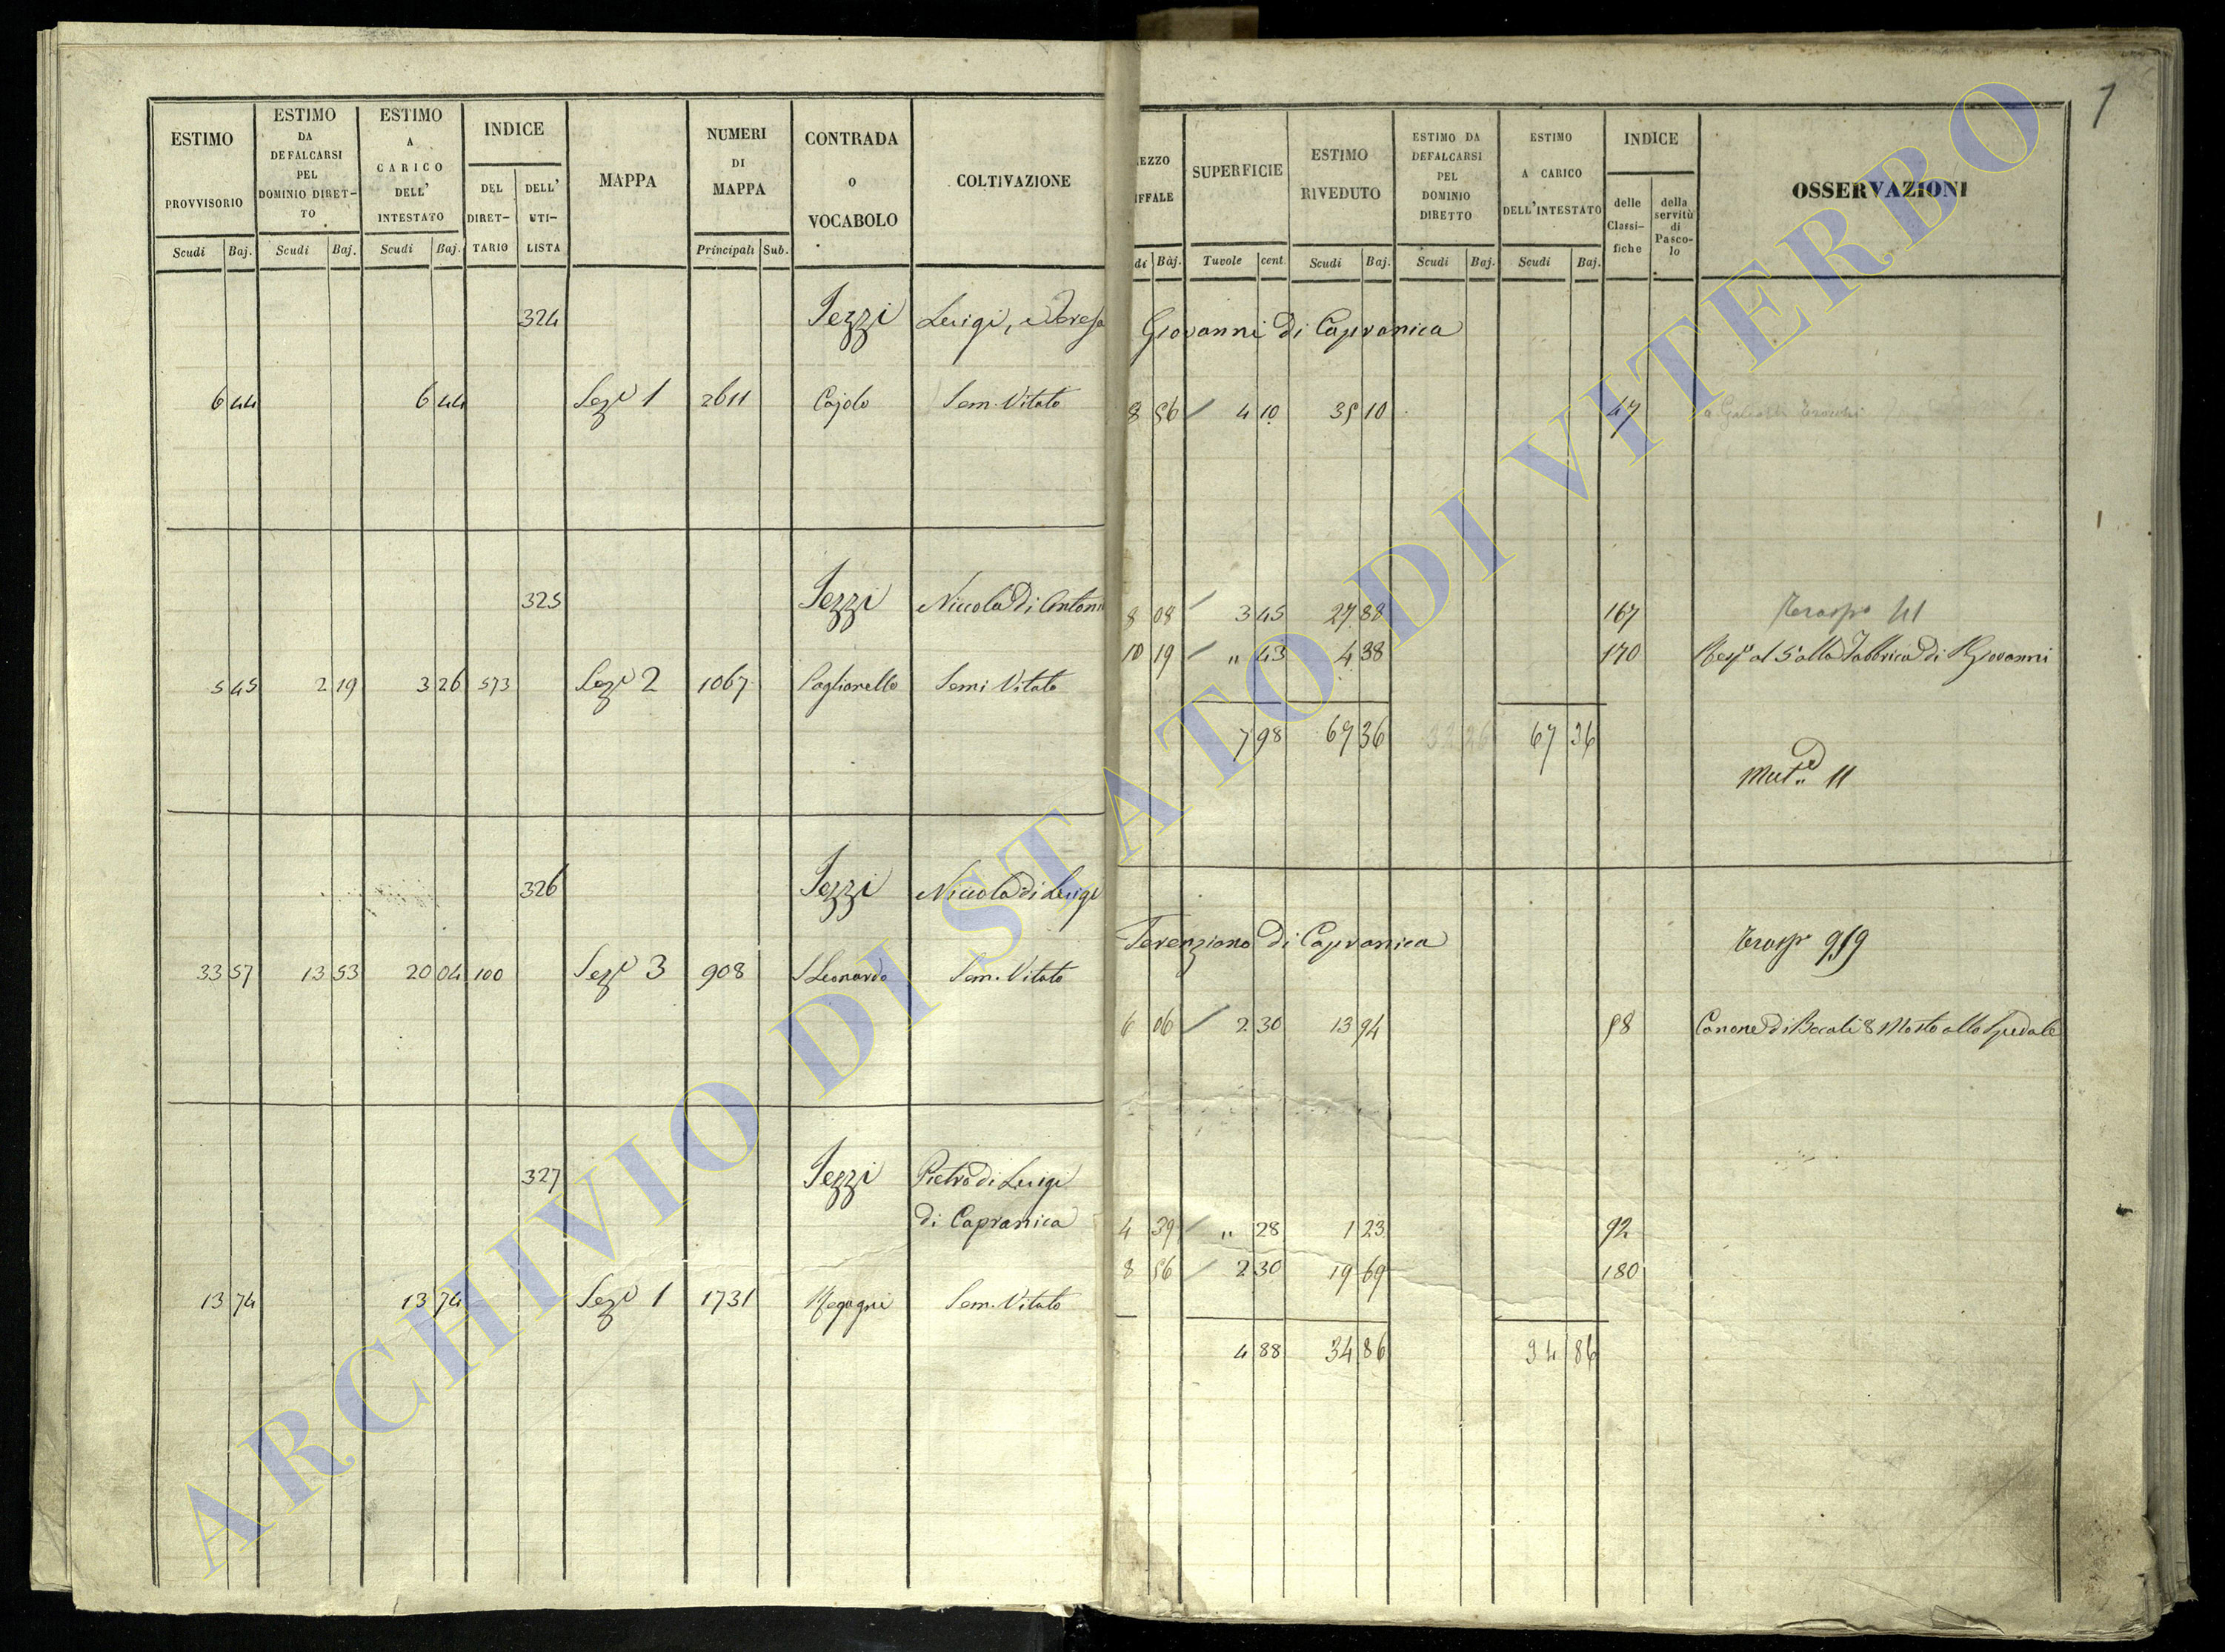 1
ESTIMO
PROVVISORIO
Scudi Baj.
ESTIMO
DA
DEFALCARSI
PEL
DOMINIO DIRET-
TO
Scudi Baj.
ESTIMO
A
CARICO
DELL'
INTESTATO
Scudi Baj.
INDICE
DEL
DIRET-
TARIO
DELL'
UTI-
LISTA
MAPPA
NUMERI
DI
MAPPA
Principali Sub.
CONTRADA
O
VOCABOLO
COLTIVAZIONE
324 Iezzi Luigi,
6 44 6 44 Sez.e 1 2611 Cajolo Sem. Vitato
325 Iezzi Niccola di Antonio
5 45 2 19 3 26 573 Sez.e 2 1067 Paglianello Semi Vitato
326 Iezzi Niccola di Luigi
33 57 13 53 20 04 100 Sez.e 3 908 S Leonardo Sem. Vitato
327 Iezzi Pietro di Luigi
di Capranica
13 74 13 74 Sez.e 1 1731 Sem. Vitato
EZZO
IFFALE
di Baj.
SUPERFICIE
Tavole cent.
ESTIMO
RIVEDUTO
Scudi Baj.
ESTIMO DA
DEFALCARSI
PEL
DOMINIO
DIRETTO
Scudi Baj.
ESTIMO
A CARICO
DELL'INTESTATO
Scudi Baj.
INDICE
delle
Classi-
fiche
della
servitù
di
Pasco-
lo
OSSERVAZIONI
Giovanni di Capranica
8 56 4 10 35 10 47
8 08 3 45 27 88 167 Trasp. 41
10 19 " 43 4 38 170 al 5 alla Fabbrica di S Giovanni
7 98 67 36 32 26 67 36
Mut.e 11
Terenziano di Capranica
Trasp. 959
6 06 2 30 13 94 58 Canone di Bocali 8 Mosto allo Spedale
4 39 " 28 1 23 92
8 56 2 30 19 69 180
4 88 34 86 34 86
ARCHIVIO DI STATO DI VITERBO